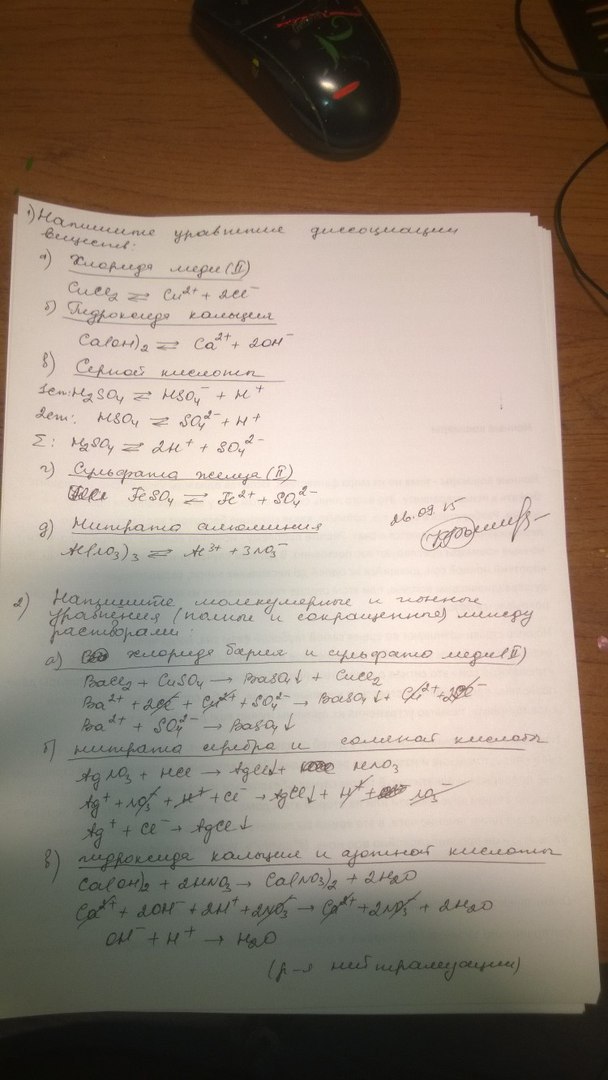 1) Напишите уравнение диссоциации
веществ:
а) Хлорида меди (II)
CuCl₂ ⇄ Cu²⁺ + 2Cl⁻
б) Гидроксида кальция
Ca(OH)₂ ⇄ Ca²⁺ + 2OH⁻
в) Серной кислоты
1ст: H₂SO₄ ⇄ HSO₄⁻ + H⁺
2ст: HSO₄ ⇄ SO₄²⁻ + H⁺
Σ: H₂SO₄ ⇄ 2H⁺ + SO₄²⁻
г) Сульфата железа (II)
FeSO₄ ⇄ Fe²⁺ + SO₄²⁻
26.09.15
д) Нитрата алюминия
Al(NO₃)₃ ⇄ Al³⁺ + 3NO₃⁻
2) Напишите молекулярные и ионные
уравнения (полные и сокращенные) между
растворами:
а) хлорида бария и сульфата меди (II)
BaCl₂ + CuSO₄ → BaSO₄↓ + CuCl₂
Ba²⁺ + 2Cl⁻ + Cu²⁺ + SO₄²⁻ → BaSO₄↓ + Cu²⁺ + 2Cl⁻
Ba²⁺ + SO₄²⁻ → BaSO₄↓
б) нитрата серебра и соляной кислоты
AgNO₃ + HCl → AgCl↓ + HNO₃
Ag⁺ + NO₃⁻ + H⁺ + Cl⁻ → AgCl↓ + H⁺ + NO₃⁻
Ag⁺ + Cl⁻ → AgCl↓
в) гидроксида кальция и азотной кислоты
Ca(OH)₂ + 2HNO₃ → Ca(NO₃)₂ + 2H₂O
Ca²⁺ + 2OH⁻ + 2H⁺ + 2NO₃⁻ → Ca²⁺ + 2NO₃⁻ + 2H₂O
OH⁻ + H⁺ → H₂O
(р-я нейтрализации)